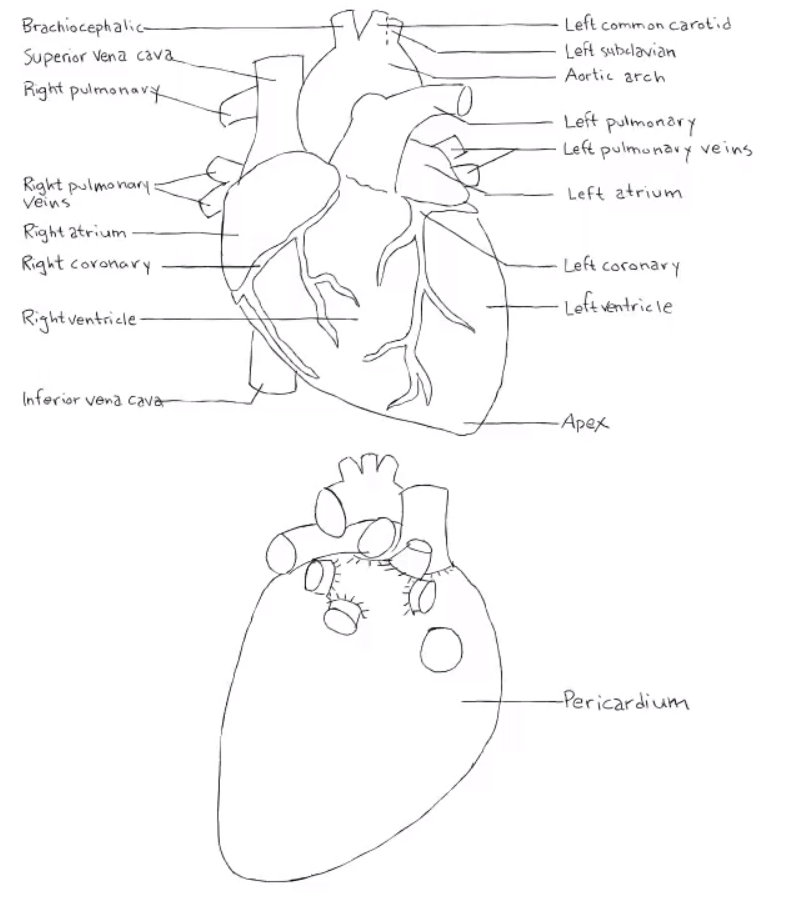 Brachiocephalic
Superior vena cava
Right pulmonary
Right pulmonary
veins
Right atrium
Right coronary
Right ventricle
Inferior vena cava
Left common carotid
Left subclavian
Aortic arch
Left pulmonary
Left pulmonary veins
Left atrium
Left coronary
Left ventricle
Apex
Pericardium